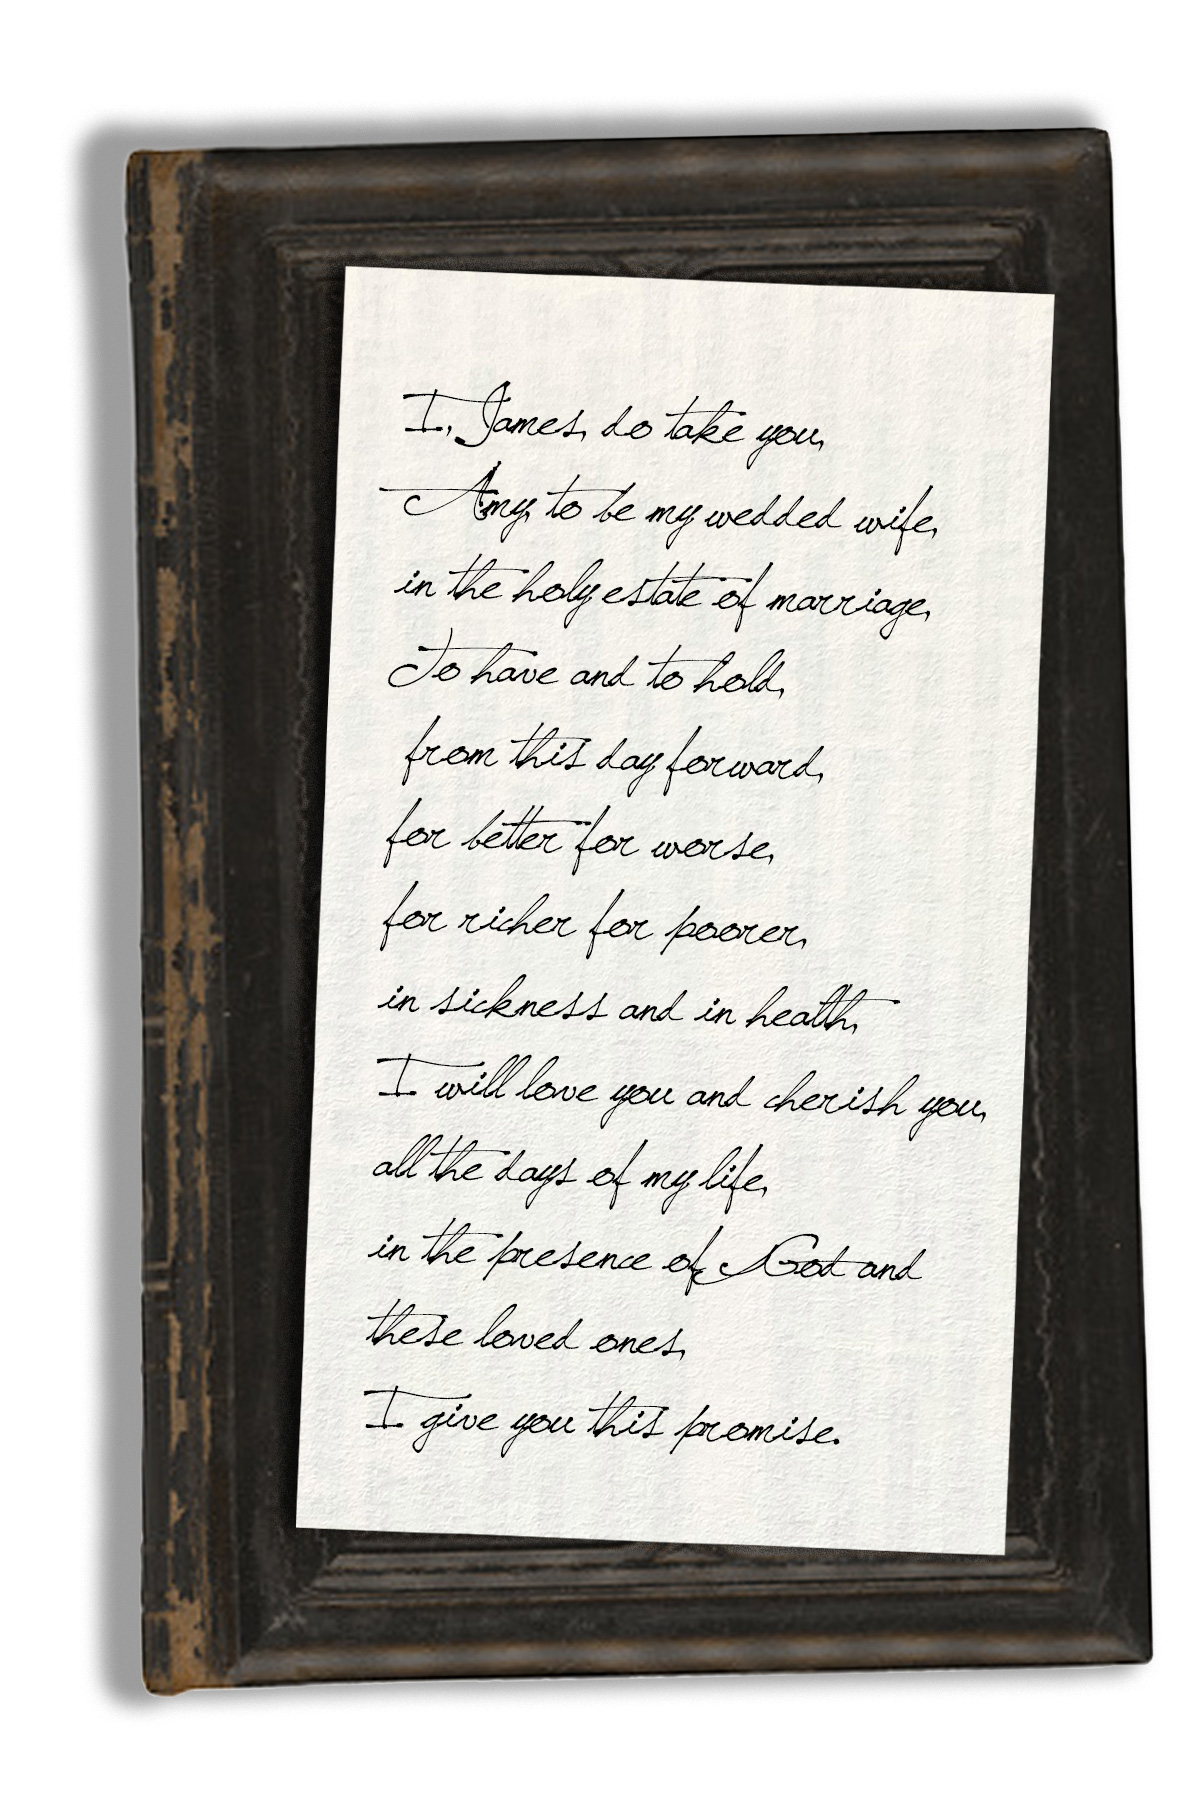 I, James, do take you,
Amy, to be my wedded wife,
in the holy estate of marriage,
To have and to hold,
from this day forward,
for better for worse,
for richer for poorer,
in sickness and in health,
I will love you and cherish you,
all the days of my life,
in the presence of God and
these loved ones,
I give you this promise.